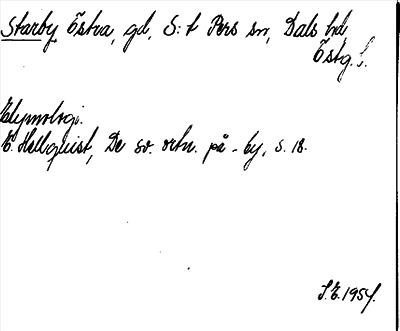 Starby Östra, gd, S:t Pers sn, Dals hd,
Östg. l.
Etymologi.
E. Hellquist, De sv. ortn. på -by, s. 18.
S.E. 1954.